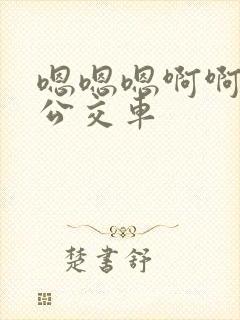 嗯嗯嗯啊啊
公交车
楚书舒